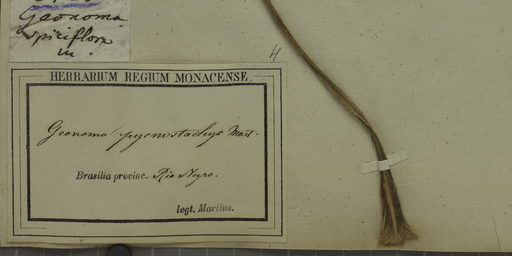 Geonoma
spiciflora
m.
4
HERBARIUM REGIUM MONACENSE.
Geonoma pycnostachys Mart.
Brasilia provinc. Rio Negro.
legt. Martius.